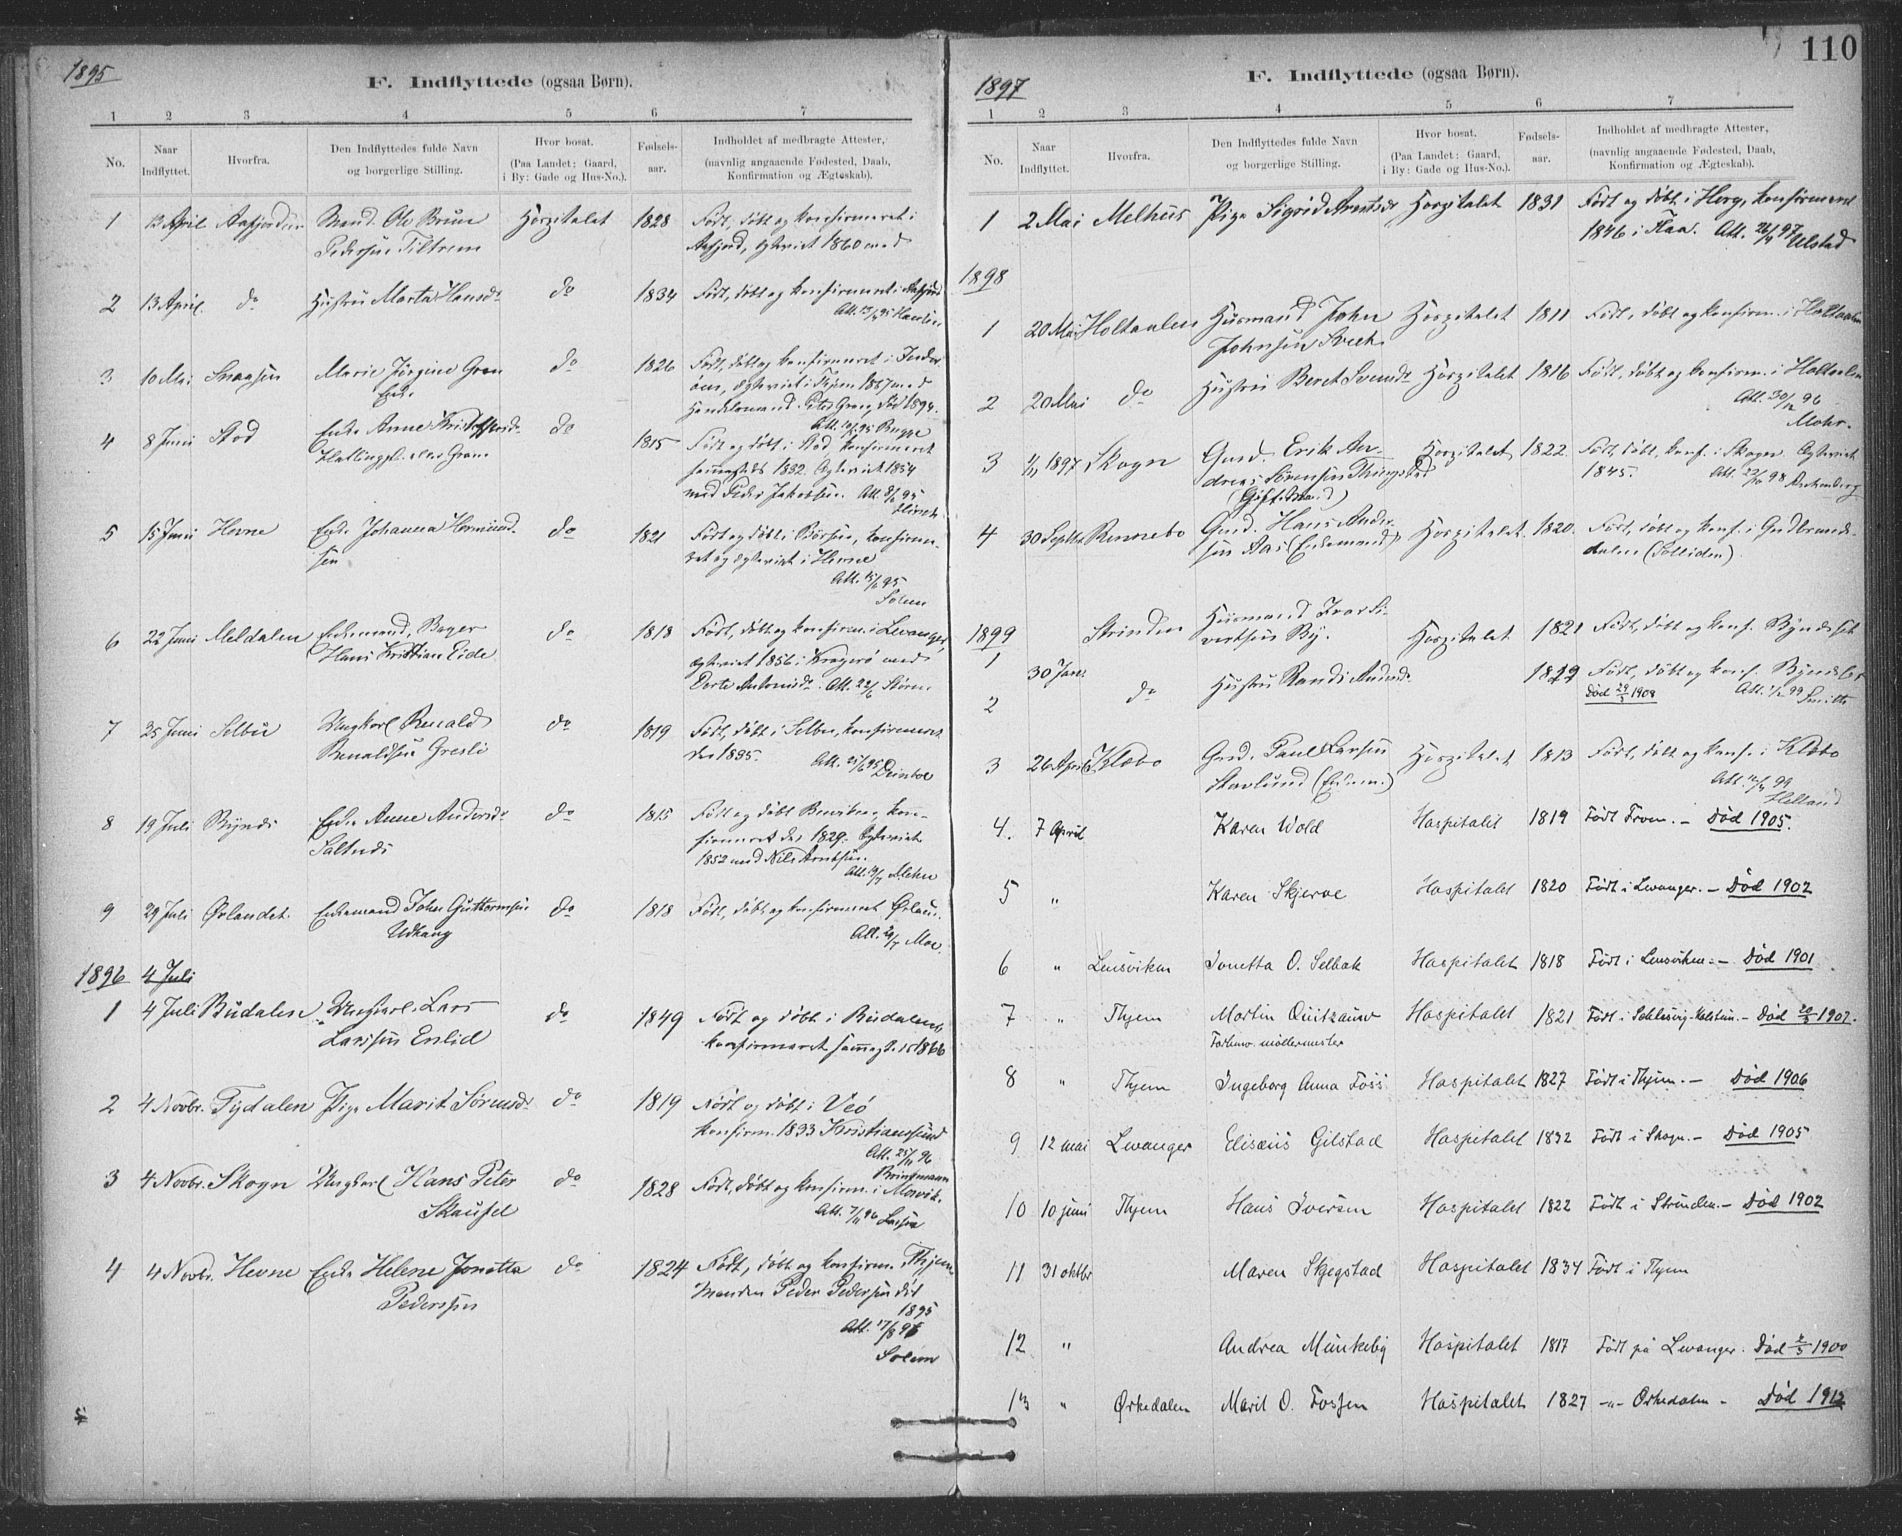 1895
F. Indflyttede (ogsaa Børn).
1 2 3 4 5 6 7
No.
Naar Indflyttet.
Hvorfra.
Den Indflyttedes fulde Navn
og borgerlige Stilling.
Hvor bosat.
(Paa Landet: Gaard,
i By: Gade og Hus-No.).
Fødsels-
aar.
Indholdet af medbragte Attester,
(navnlig angaaende Fødested, Daab,
Konfirmation og Ægteskab).
1 13 April Aafjorden Mand. Ole Brun Hospitalet 1828 Født, døbt og konfirmeret i
Pedersen Tiltrem Aafjord, ægteviet 1860 med
2 13 April do Hustru Marta Hansdr do 1834 Født, døbt og konfirmeret i Aafjord
3 10 Mai Snaasen Marie Jørgine Gran do 1826 Født, døbt og konfirmeret i Inder-
Enke øen, ægteviet i Thjem 1867 med
Handelsmand Peter Gran, død 1894.
Att. 10/5 95 Bugge
4 8 Juni Stod Enke Anne Kristoffersdr do 1815 Født og døbt i Stod, konfirmeret
sammesteds 1832. Ægteviet 1854
med Peder Jakobsen. Att. 8/6 95
5 15 Juni Hevne Enke Johanna Hermund- do 1821 Født og døbt i Børsen, konfirme-
sen ret og ægteviet i Hevne
Att. 15/6 95
Solem
6 22 Juni Meldalen Enkemand, Bager do 1818 Født, døbt og konfirm. i Levanger,
Hans Kristian Eide ægteviet 1856 i Kragerø med
Dorte Antonisdr. Att. 22/6 Støren
7 25 Juni Selbu Ungkarl Renald do 1819 Født, døbt i Selbu, konfirmeret
Renaldsen Gresli der 1895. Att. 25/6 95
8 19 Juli Bynes Enke Anne Andersdr do 1815 Født og døbt Børseskn, kon-
Saltnes firmeret der 1829. Ægteviet
1852 med Nils Arntsen.
9 29 Juli Ørlandet. Enkemand John Guttormsen do 1818 Født, døbt og konfirmeret Ørlan.
Udhaug Att. 29/7 Moe
1896 4 Juli
1 4 Juli Budalen Ungkarl Lars do 1849 Født og døbt i Budalen,
Larssen Enlid konfirmeret sammests 1866
2 4 Novbr. Tydalen Pige Marit Sørensdr do 1819 Født og døbt i Veø
konfirm. 1833 Kristianssund
Att. 25/11 96
Brinkmann
3 4 Novbr. Skogn Ungkarl Hans Peter do 1828 Født, døbt og konfirm. i Mosvik.
Skaufel Att. 7/11 96 Larsen
4 4 Novbr. Hevne Enke Helene Jonetta do 1824 Født, døbt og konfirm. Thjem
Pederssen Manden Peder Pedersen død
1895
Att. 17/8 96
Solem
110
1897
F. Indflyttede (ogsaa Børn).
1 2 3 4 5 6 7
No.
Naar Indflyttet.
Hvorfra.
Den Indflyttedes fulde Navn
og borgerlige Stilling.
Hvor bosat.
(Paa Landet: Gaard,
i By: Gade og Hus-No.).
Fødsels-
aar.
Indholdet af medbragte Attester,
(navnlig angaaende Fødested, Daab,
Konfirmation og Ægteskab).
1 2 Mai Melhus Pige Sigrid Arntsdr Hospitalet 1831 Født og døbt i Horg, konfirmeret
1846 i Flaa. Att. 26/4 97 Ulstad
1898
1 20 Mai Holtaalen Husmand John Hospitalet 1811 Født, døbt og konfirm. i Holtaalen
Johnsen
2 20 Mai do Hustru Beret Svendsdr Hospitalet 1816 Født, døbt og konfirm. i Holtaalen
Att. 30/12 96
Mohr.
3 1/11 1897 Skogn Gmd. Erik An- Hospitalet 1822. Født, døbt, konf. i Skogn. Ægteviet
dreas Sørensen Thingstad 1845. Att. 22/10 98
(Gift Mand)
4 30 Septbr Rennebo Gmd. Hans Ander- Hospitalet 1820. Født, døbt og konf. i Gudbrands-
sen Aas (Enkemand) dalen (Tolliden)
1899
1 30 Janr Strinden Husmand Ivar Si- Hospitalet 1821 Født, døbt og konf. Byneset
vertsen By.
2 do Hustru Randi Andersdr 1829 Født, døbt og konf. Byneset
Død 29/3 1908 Att. 1/2 99 Smith
3 26 April Klæbo Gmd. Paul Larsen Hospitalet 1813 Født, døbt og konf. i Klæbo
Stavlund (Enkem.) Att. 12/4 99
Helland
4. 7 April Karen Wold Hospitalet 1819 Født Froen. – Død 1905.
5 " Karen Skjerve Hospitalet 1820 Født i Levanger. – Død 1902
6 " Lensviken Jonetta O. Selbak Hospitalet 1818 Født i Lensviken. – Død 1901
7 " Thjem Martin Quitzauw Hospitalet 1821 Født i Schlesvig-Holstein. – Død 20/3 1902.
Forhenv. møllermester
8 " Thjem Ingeborg Anna Foss Hospitalet 1827 Født i Thjem. – Død 1906
9 12 mai Levanger Elisæus Gilstad Hospitalet 1832 Født i Skogn. – Død 1905
10 10 juni Thjem Hans Iversen Hospitalet 1822 Født i Strinden. – Død 1902
11 31 oktbr Maren Skjegstad Hospitalet 1834 Født i Thjem
12 " Andrea Munkeby Hospitalet 1817 Født på Levanger. Død 4/3 1900
13 " Ørkedalen Marit O. Fossen Hospitalet 1827 -"- Ørkedalen - Død 1912